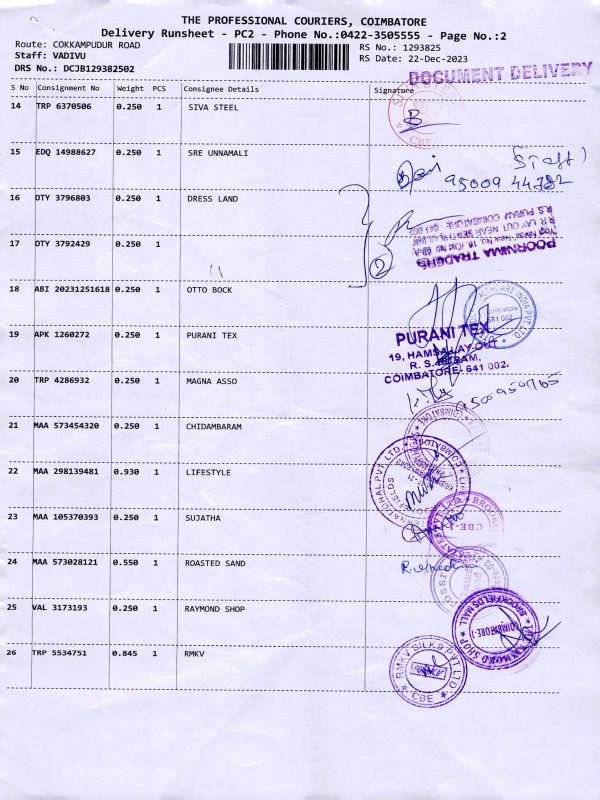 THE PROFESSIONAL COURIERS, COIMBATORE
Delivery Runsheet - PC2 - Phone No.:0422-3505555 - Page No.:2
Route: COKKAMPUDUR ROAD
Staff: VADIVU
DRS No.: DCJB129382502
RS No.: 1293825
RS Date: 22-Dec-2023
DOCUMENT DELIVERY
S No Consignment No Weight PCS Consignee Details Signature
14 TRP 6370506 0.250 1 SIVA STEEL
CBE
15 EDQ 14988627 0.250 1 SRE UNNAMALI
Staff)
95009 44782
16 OTY 3796803 0.250 1 DRESS LAND
17 OTY 3792429 0.250 1 "
2
POORNIMA TRADERS
R.S. PURAM COIMBATORE
18 ABI 20231251618 0.250 1 OTTO BOCK
641 002
19 APK 1260272 0.250 1 PURANI TEX
PURANI TEX
19, HAMSA LAY-OUT
R. S. PURAM,
COIMBATORE- 641 002.
20 TRP 4286932 0.250 1 MAGNA ASSO
21 MAA 573454320 0.250 1 CHIDAMBARAM
22 MAA 298139481 0.930 1 LIFESTYLE
23 MAA 105370393 0.250 1 SUJATHA
CBE-1
24 MAA 573028121 0.550 1 ROASTED SAND
25 VAL 3173193 0.250 1 RAYMOND SHOP
BROOKFIELDS MALL
COIMBATORE-1
RAYMOND SHOP
26 TRP 5534751 0.845 1 RMKV
RMKV SILKS PVT LTD
CBE